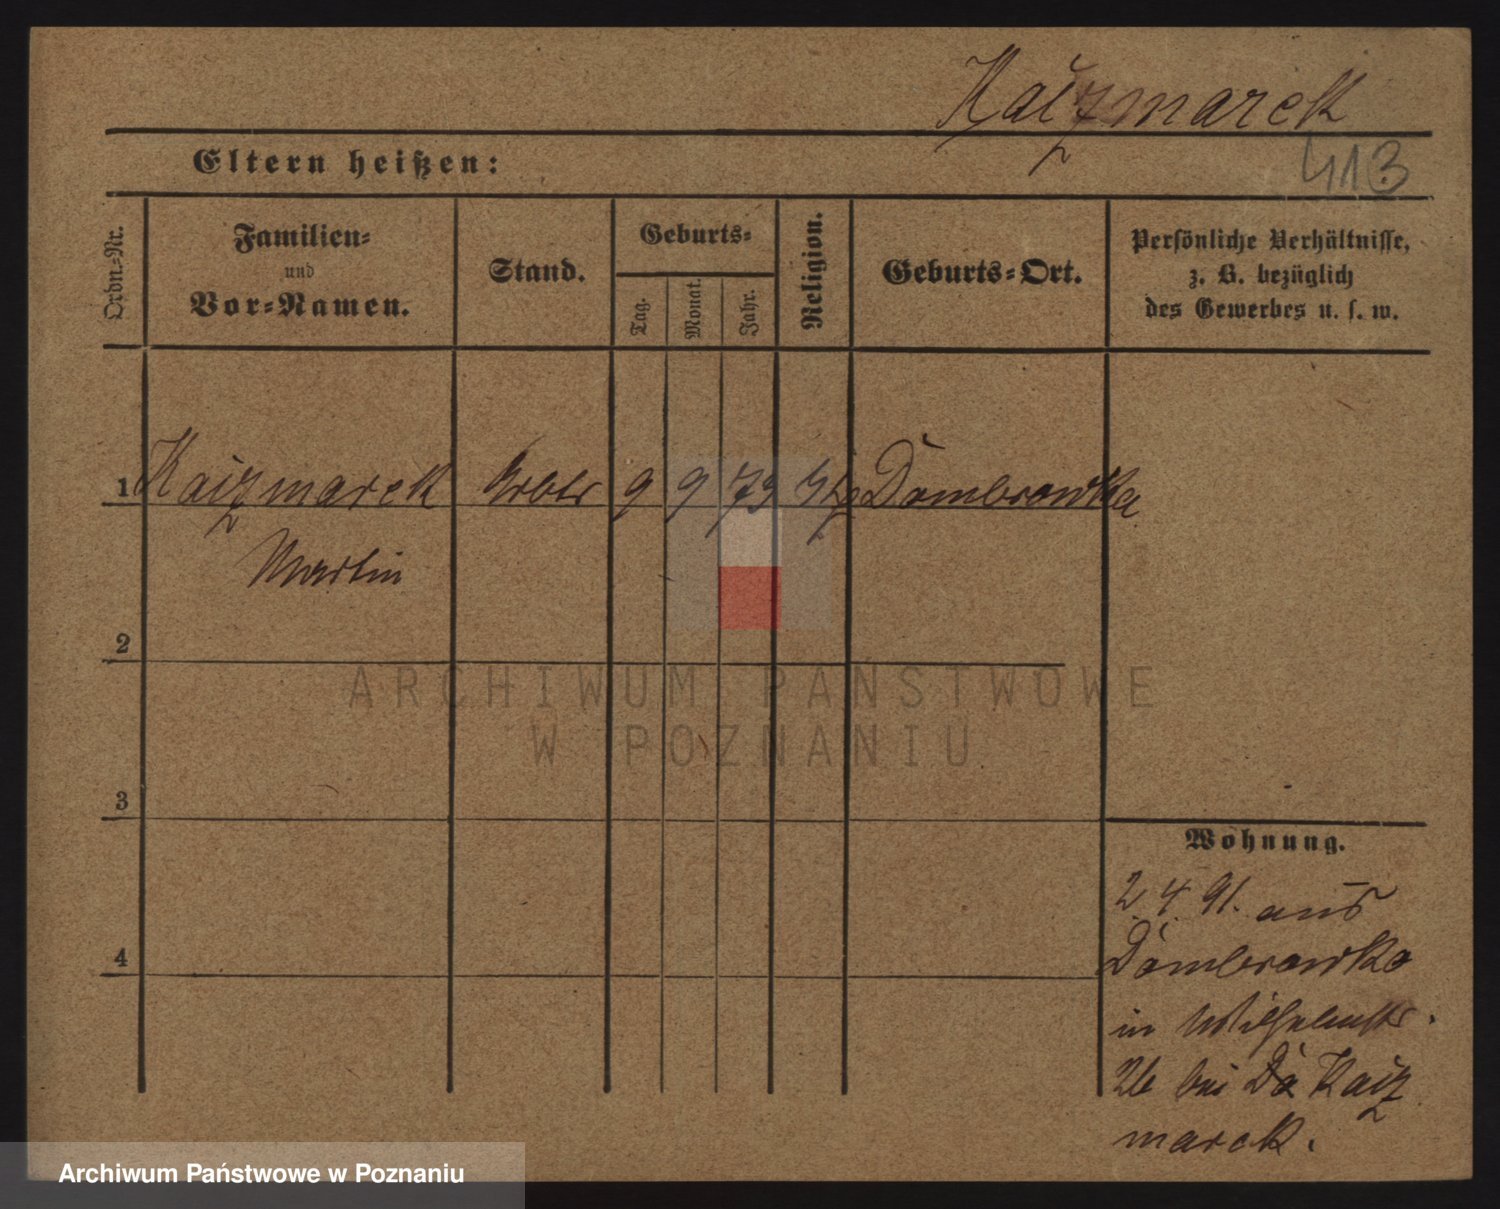 Kaizmarek
413
Eltern heißen:
Ordn.-Nr.
Familien-
und
Vor-Namen.
Stand.
Geburts-
Tag.
Monat.
Jahr.
Religion.
Geburts-Ort.
Persönliche Verhältnisse,
z. B. bezüglich
des Gewerbes u. s. w.
1 Kaizmarek 9 9 79 Dombrowka
Martin
2
ARCHIWUM PAŃSTWOWE
W POZNANIU
3
Wohnung.
2 4 91. aus
Dombrowka
4
in Wilhelmstr.
26 bei Kaiz
marek.
Archiwum Państwowe w Poznaniu